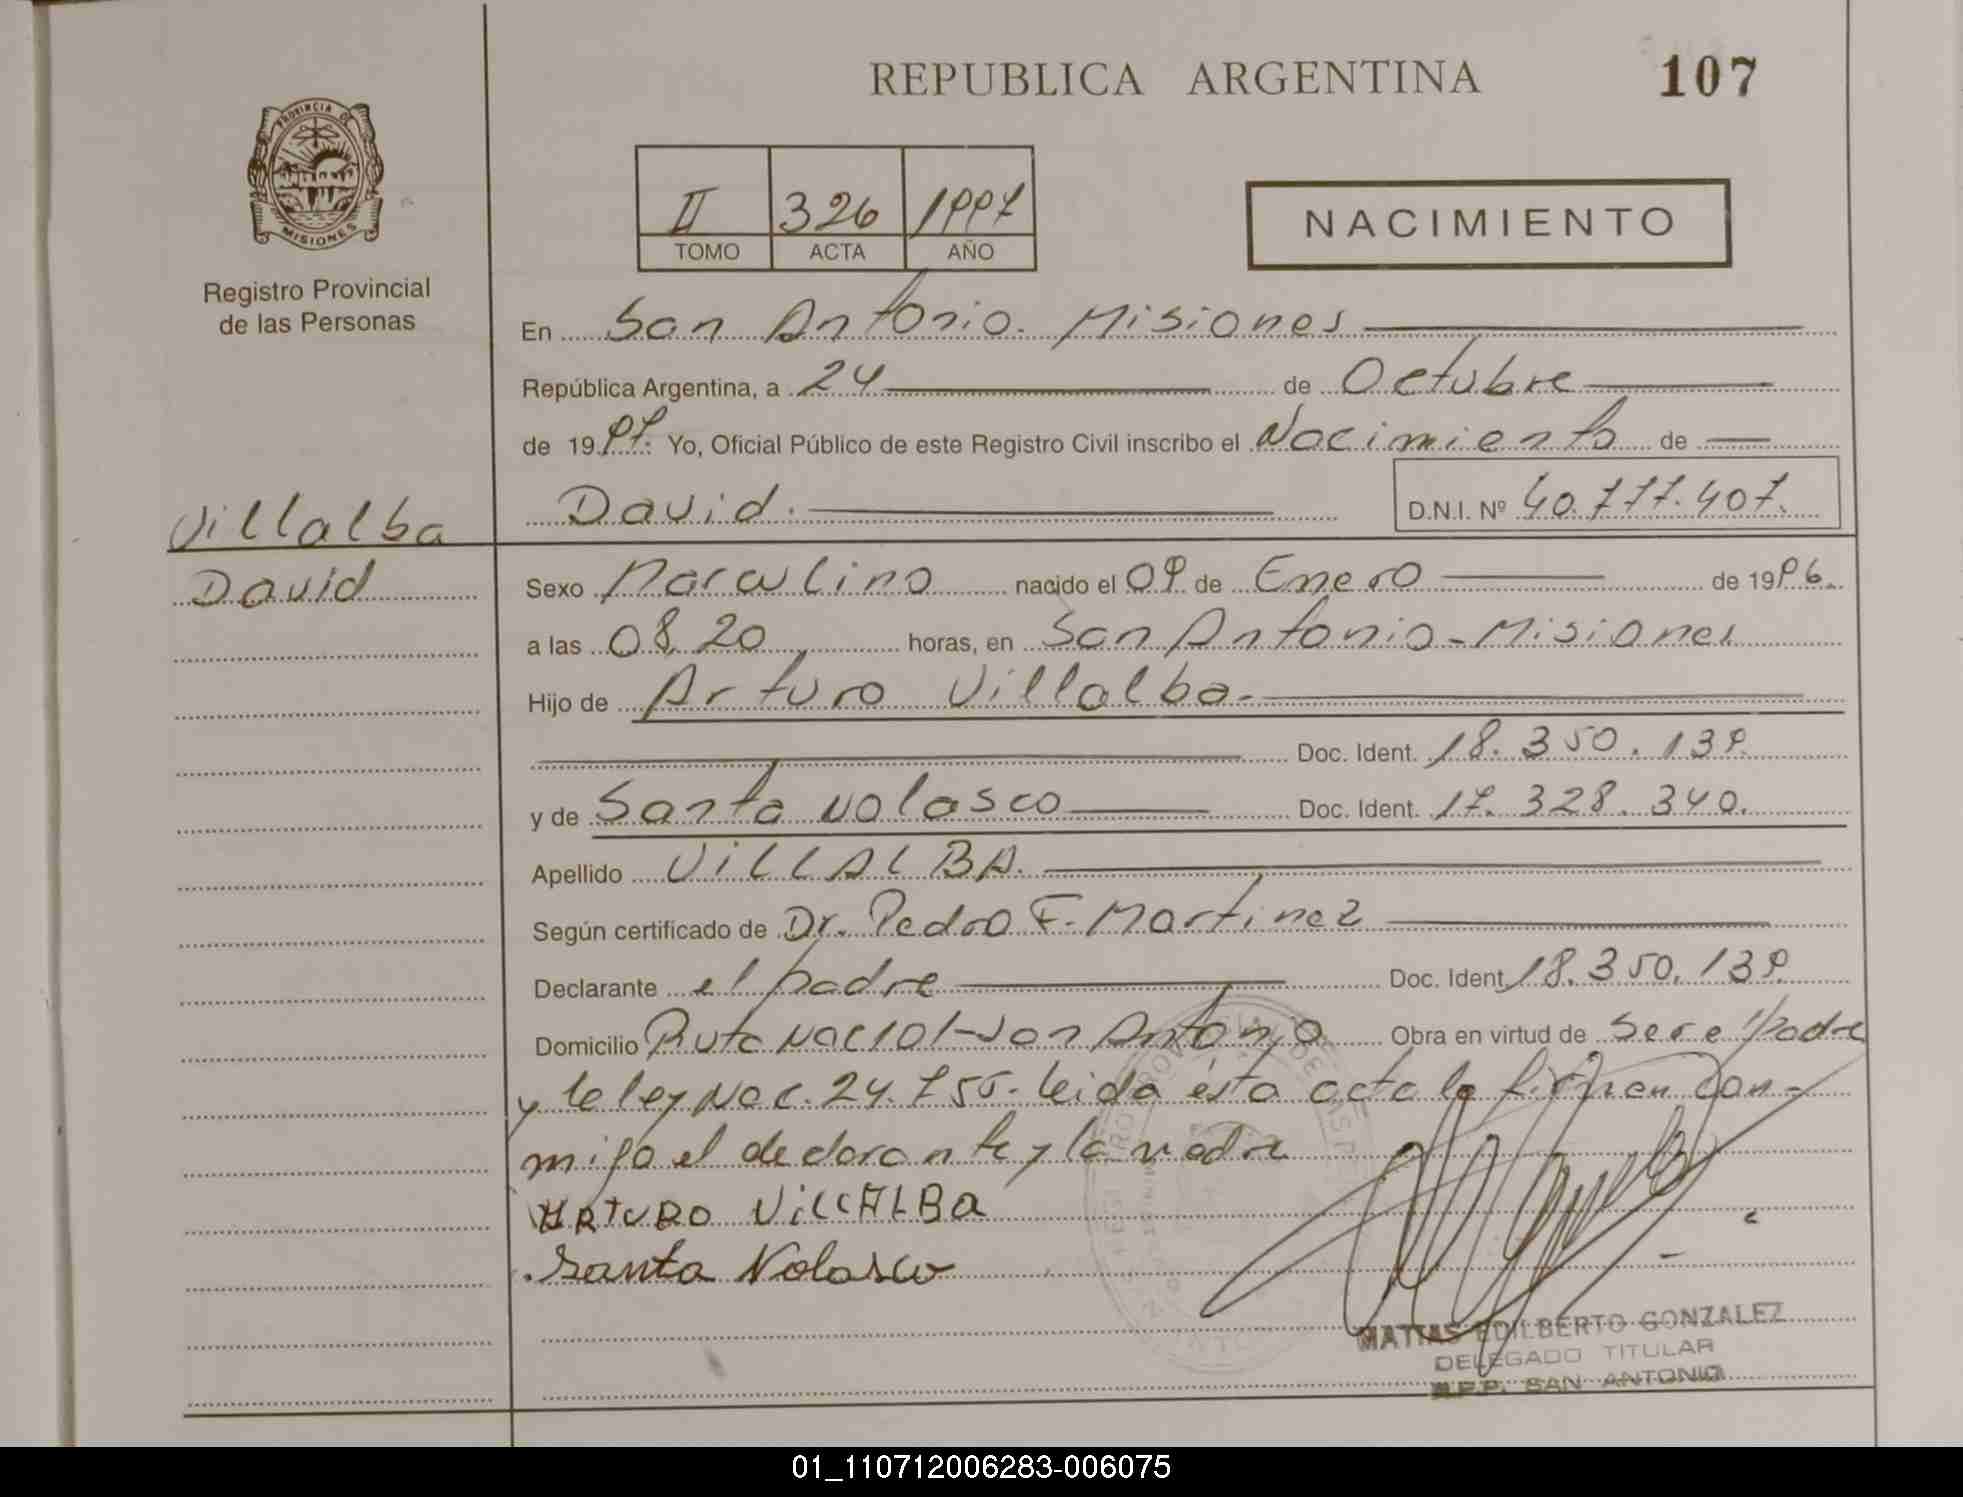 REPUBLICA ARGENTINA
107
PROVINCIA DE
MISIONES
Registro Provincial
de las Personas
II 326 1997
TOMO ACTA AÑO
NACIMIENTO
En San Antonio. Misiones
República Argentina, a 24 de Octubre
de 1997. Yo, Oficial Público de este Registro Civil inscribo el Nacimiento de
David. D.N.I. Nº 40.777.407.
Villalba
David
Sexo Masculino nacido el 09 de Enero de 1996.
a las 08,20 horas, en San Antonio - Misiones
Hijo de Arturo Villalba.
Doc. Ident. 18.350.139.
y de Santa Nolasco Doc. Ident. 17.328.340.
Apellido VILLALBA.
Según certificado de Dr. Pedro F. Martinez
Declarante el padre Doc. Ident. 18.350.139
Domicilio Ruta Nacional - San Antonio Obra en virtud de ser el padre
y la ley Nac. 24.755. Leida ésta acta la firman con-
migo el declarante y la madre
ARTURO VILLALBA
Santa Nolasco
MATIAS EDILBERTO GONZALEZ
DELEGADO TITULAR
R.P.P. SAN ANTONIO
01_110712006283-006075